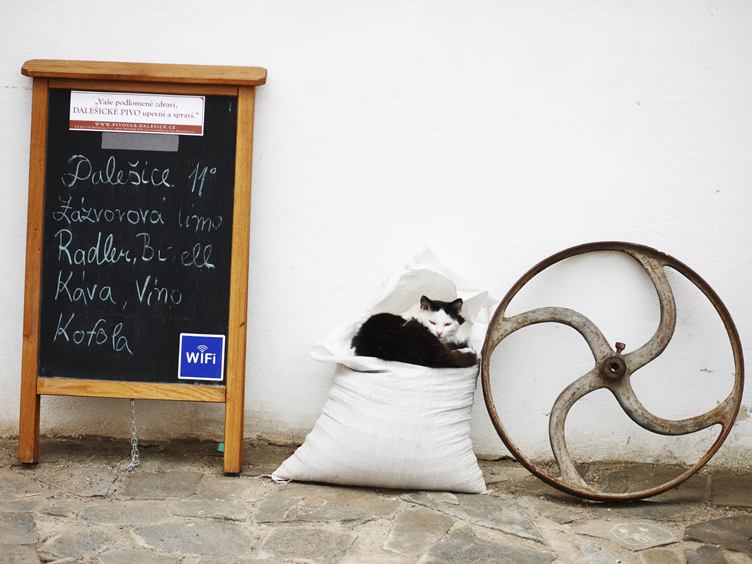 „Vaše podlomené zdraví,
DALEŠICKÉ PIVO upevní a spraví."
WWW.PIVOVAR-DALESICE.CZ
Dalešice 11°
Zázvorová limo
Radler, Bi ell
Káva, Víno
Kofola
WiFi